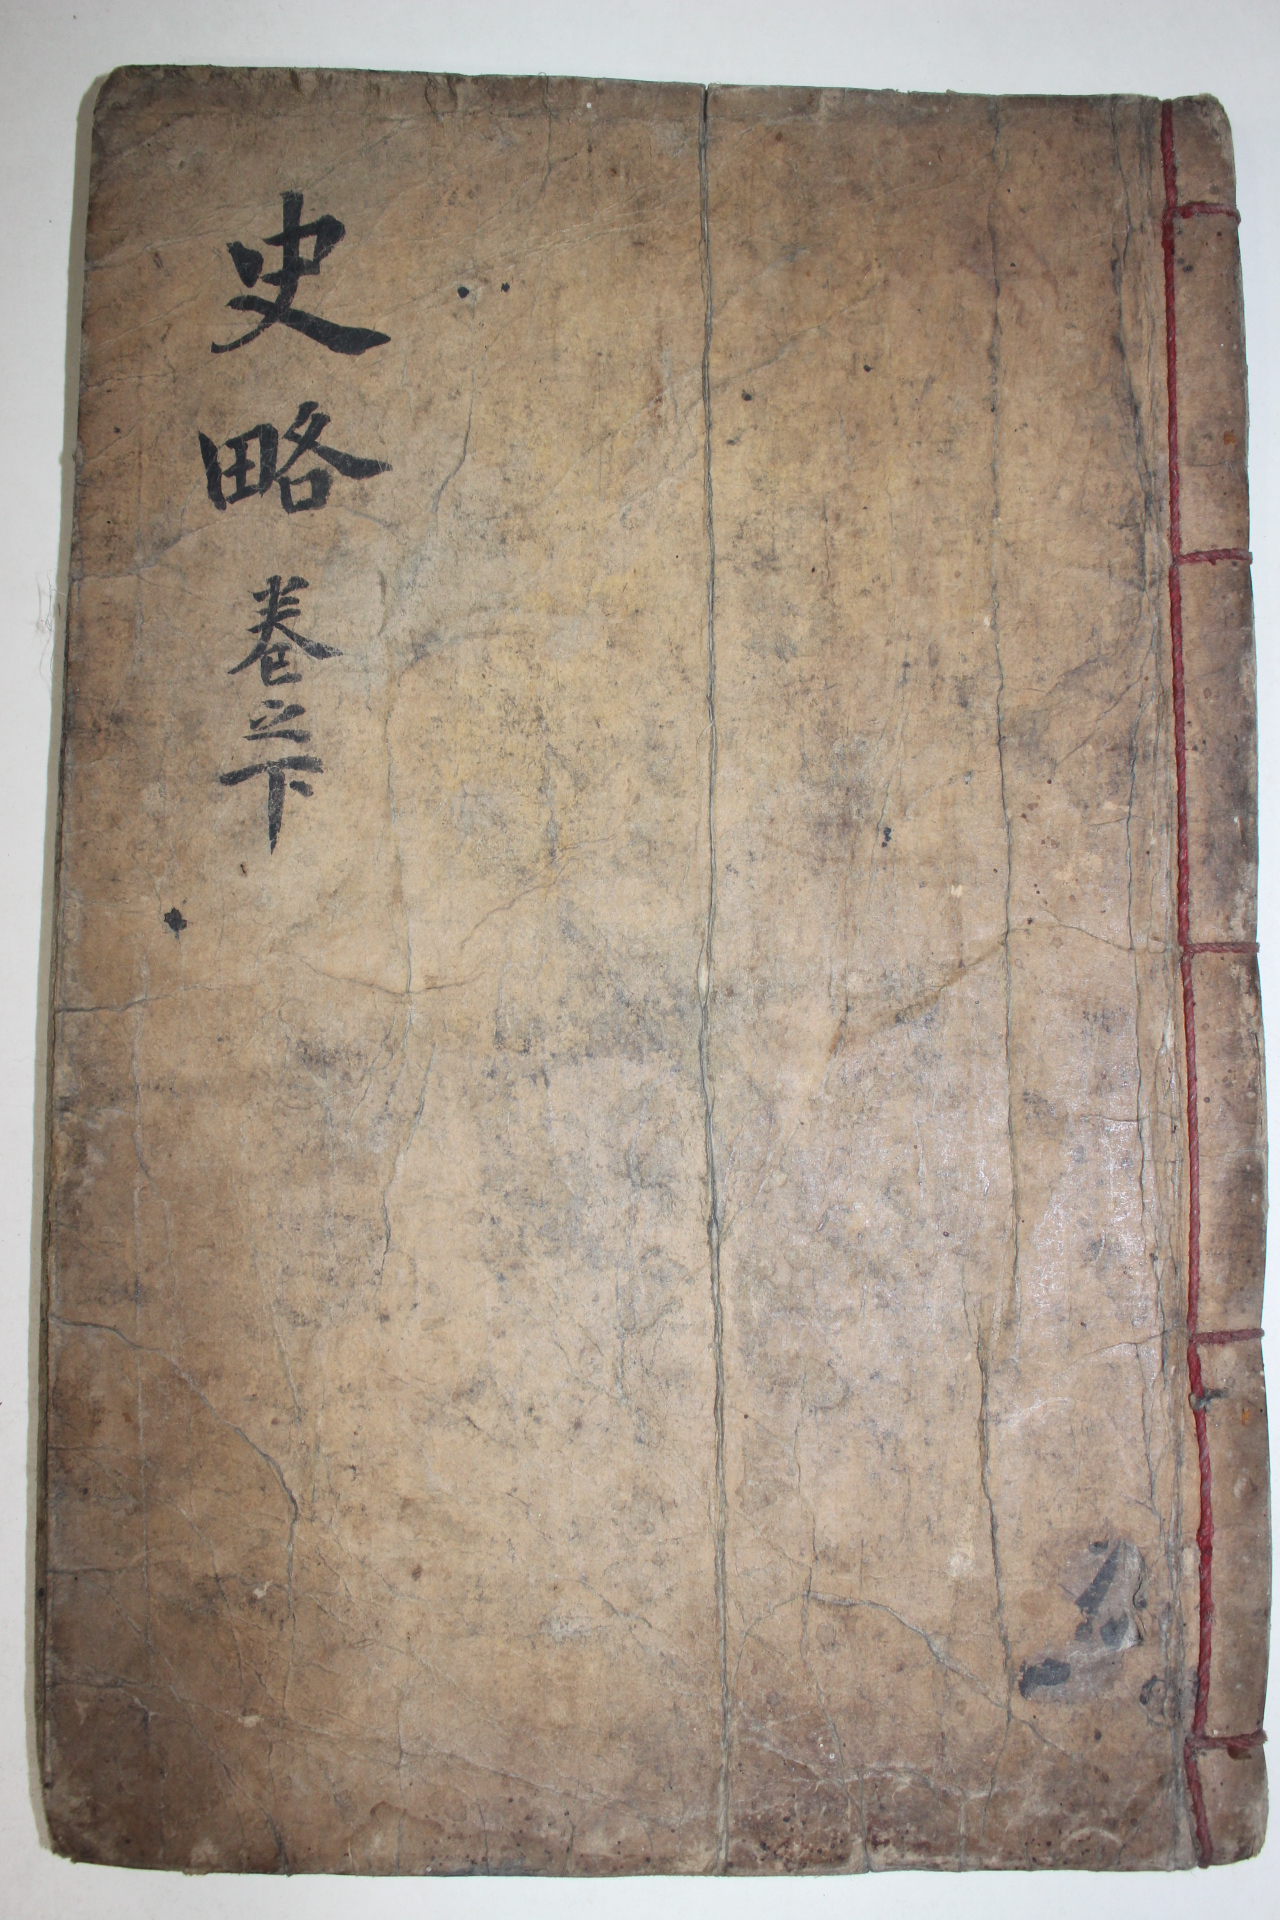 史略 卷之下